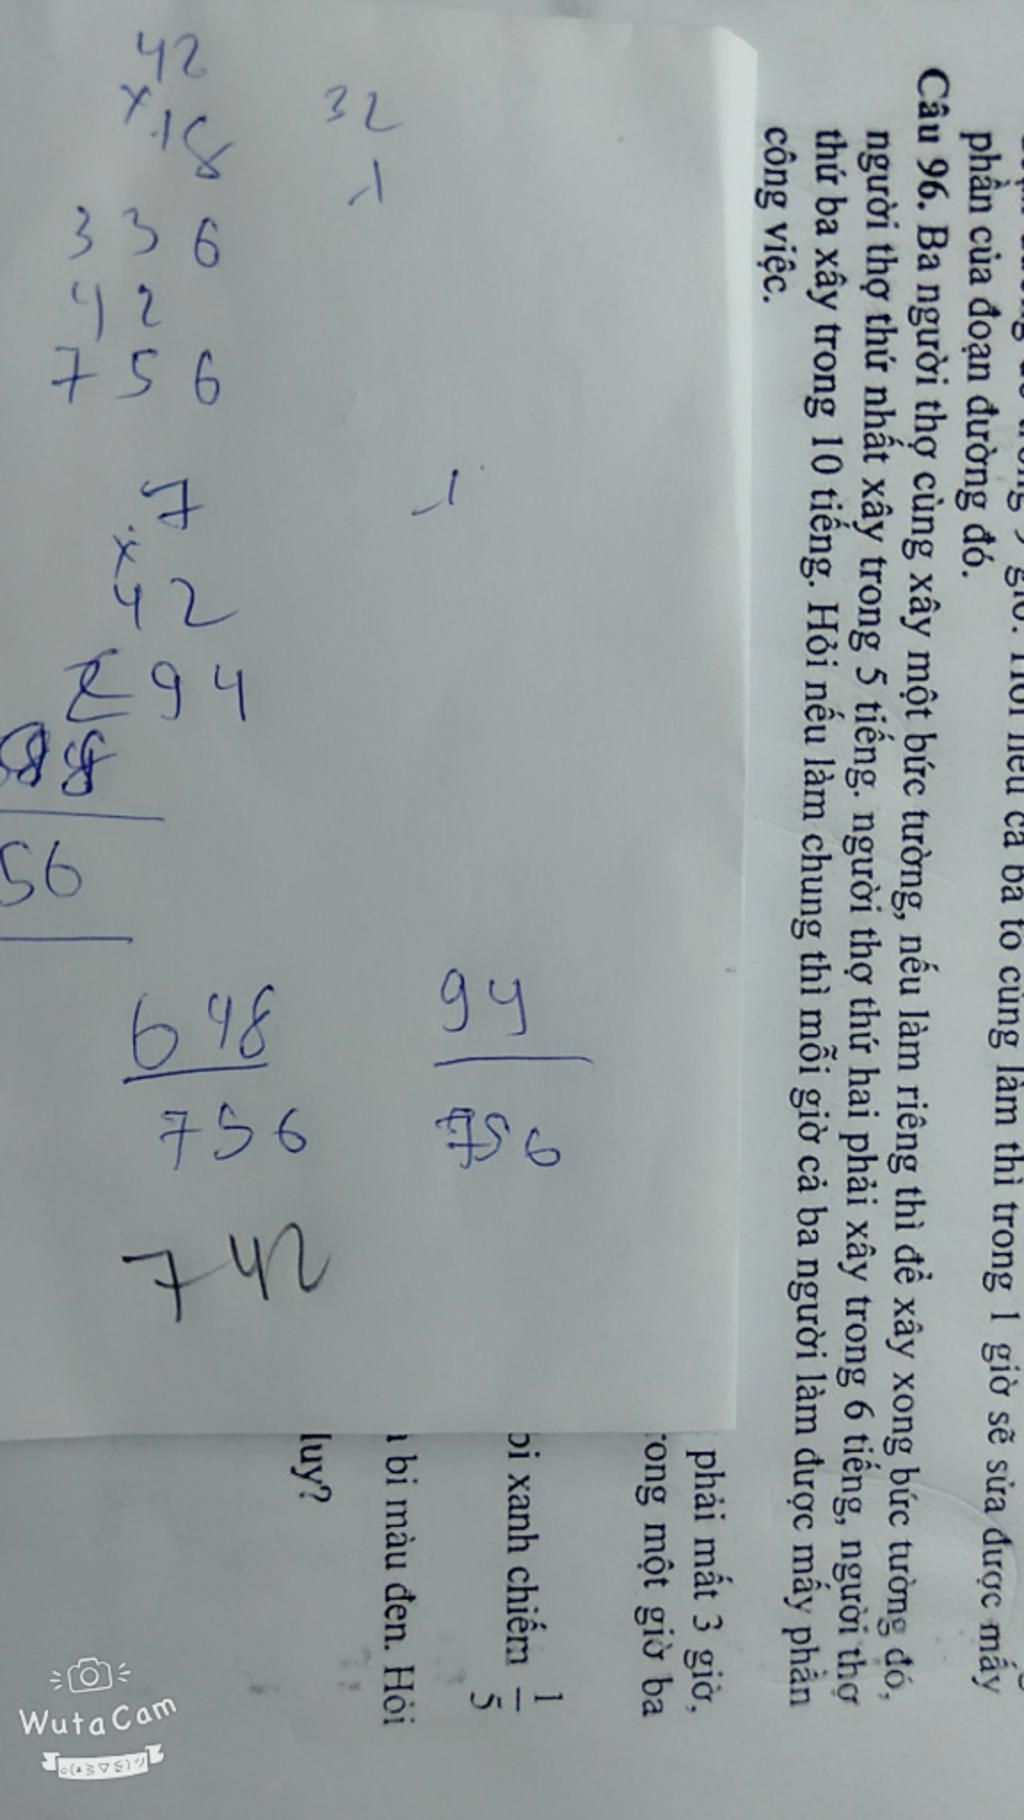 phần của đoạn đường đó.
Câu 96. Ba người thợ cùng xây một bức tường, nếu làm riêng thì để xây xong bức tường đó,
người thợ thứ nhất xây trong 5 tiếng. người thợ thứ hai phải xây trong 6 tiếng, người thợ
thứ ba xây trong 10 tiếng. Hỏi nếu làm chung thì mỗi giờ cả ba người làm được mấy phần
công việc.
phải mất 3 giờ,
một giờ ba
xanh chiếm 1/5
bi màu đen. Hỏi
luy?
42
x 18
336
42
756
32
7
x 42
294
56
648
756
94
756
742
WutaCam